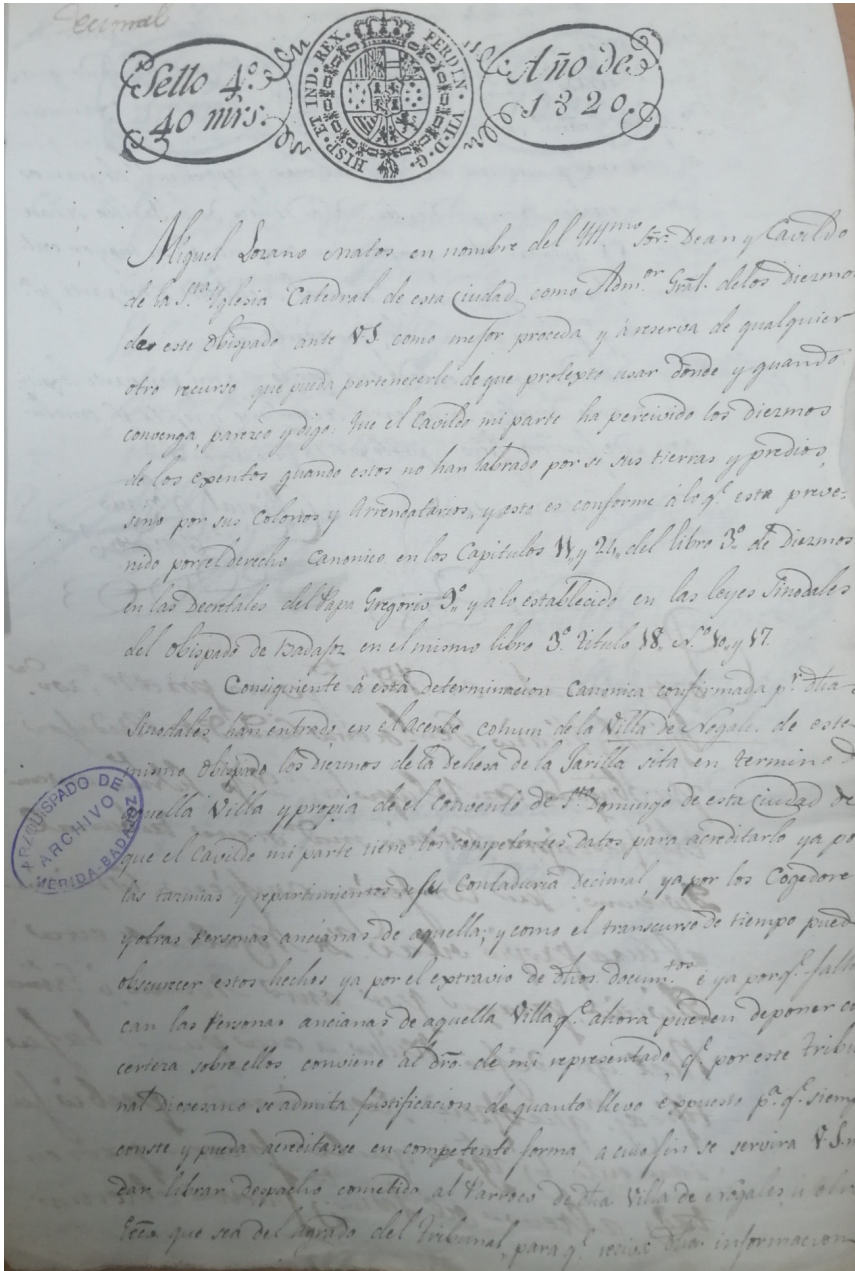 Decimal
Sello 4º.
40 mrs.
HISP. ET IND. REX. FERDIN. VII. D. G.
Año de
1820.
Miguel Lozano Matos en nombre del Yllmo Sor. Dean y Cavildo
de la Sta. Yglesia Catedral de esta Ciudad como Adm.or Gral. delos Diezmos
de este Obispado ante VS. como mejor proceda y á reserva de qualquier
otro recurso que pueda pertenecerle de que protexto usar donde y quando
convenga, parezco y digo: Que el Cavildo mi parte ha percivido los diezmos
de los exentos quando estos no han labrado por si sus tierras y predios,
sino por sus Colonos y Arrendatarios, y esto es conforme á lo q.e esta preve-
nido por el derecho Canonico en los Capitulos 11,, y 24,, del libro 3º. de Diezmos
en las Decretales del Papa Gregorio 9º,, y a lo establecido en las leyes Sinodales
del Obispado de Badajoz en el mismo libro 3º. titulo 18,, N.º 10,, y 17.
Consiguiente á esta determinacion Canonica confirmada p.r dhas
Sinodales han entrado en el acerbo comun de la Villa de Nogales de este
mismo Obispado los diezmos de la dehesa de la Jarilla sita en termino d
aquella Villa y propia de el Convento de Sto. Domingo de esta Ciudad de
que el Cavildo mi parte tiene los competentes datos para acreditarlo ya po
las tazmias y repartimientos de su Contaduria Decimal, ya por los Cogedore
y otras Personas ancianas de aquella; y como el transcurso de tiempo pued
obscurcer estos hechos ya por el extravio de dhos. docum.tos é ya porq.e fallez
can las Personas ancianas de aquella Villa q.e ahora pueden deponer co
certeza sobre ellos, conviene al dro. de mi representado, q.e por este Tribu
nal Diocesano se admita justificacion de quanto llevo expuesto p.a q.e siemp
conste y pueda acreditarse en competente forma, a cuio fin se servira V.S. m
dar librar despacho cometido al Parroco de dha Villa de Nogales, ú otro
Ecco. que sea del agrado del Tribunal, para q.e reciva dha informacion
ARZOBISPADO DE
ARCHIVO
MERIDA-BADAJOZ